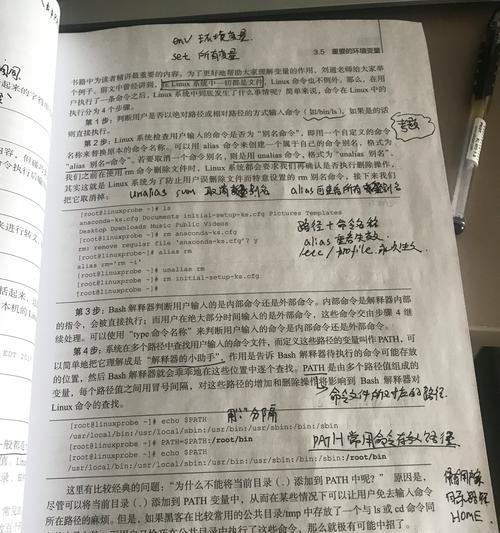 env 环境变量
set 所有变量
3.5 重要的环境变量
书籍中为读者精讲最重要的内容。为了更好地帮助大家理解变量的作用，刘遄老师给大家举
个例子。前文中曾经讲到，在Linux系统中一切都是文件，Linux命令也不例外。那么，在用
户执行了一条命令之后，Linux系统中到底发生了什么事情呢？简单来说，命令在Linux中的
执行分为4个步骤。
第1步：判断用户是否以绝对路径或相对路径的方式输入命令（如/bin/ls），如果是的话
则直接执行。
第2步：Linux系统检查用户输入的命令是否为“别名命令”，即用一个自定义的命令
名称来替换原本的命令名称。可以用alias命令来创建一个属于自己的命令别名，格式为
“alias 别名=命令”。若要取消一个命令别名，则是用unalias命令，格式为“unalias 别名”。
我们之前在使用rm命令删除文件时，Linux系统都会要求我们再确认是否执行删除操作，
其实这就是Linux系统为了防止用户误删除文件而特意设置的rm别名命令，接下来我们
把它取消掉：
unalias rm 取消别名
[root@linuxprobe ~]# ls
anaconda-ks.cfg Documents initial-setup-ks.cfg Pictures Templates
Desktop Downloads Music Public Videos
[root@linuxprobe ~]# rm anaconda-ks.cfg
rm: remove regular file 'anaconda-ks.cfg'? y
[root@linuxprobe ~]# alias rm
alias rm='rm -i'
[root@linuxprobe ~]# unalias rm
[root@linuxprobe ~]# rm initial-setup-ks.cfg
[root@linuxprobe ~]#
路径+命令名称
第3步：Bash解释器判断用户输入的是内部命令还是外部命令。内部命令是解释器内部
的指令，会被直接执行；而用户在绝大部分时间输入的是外部命令，这些命令交由步骤4继
续处理。可以使用“type命令名称”来判断用户输入的命令是内部命令还是外部命令。
第4步：系统在多个路径中查找用户输入的命令文件，而定义这些路径的变量叫作PATH，可
以简单地把它理解成是“解释器的小助手”，作用是告诉Bash解释器待执行的命令可能存放
的位置，然后Bash解释器就会乖乖地在这些位置中逐个查找。PATH是由多个路径值组成的
变量，每个路径值之间用冒号间隔，对这些路径的增加和删除操作将影响到Bash解释器对
Linux命令的查找。
命令文件所对应的路径
用":"分隔
[root@linuxprobe ~]# echo $PATH
/usr/local/bin:/usr/local/sbin:/usr/bin:/usr/sbin:/bin:/sbin
[root@linuxprobe ~]# PATH=$PATH:/root/bin
[root@linuxprobe ~]# echo $PATH
/usr/local/bin:/usr/local/sbin:/usr/bin:/usr/sbin:/bin:/sbin:/root/bin
这里有比较经典的问题：“为什么不能将当前目录（.）添加到PATH中呢？” 原因是，
尽管可以将当前目录（.）添加到PATH变量中，从而在某些情况下可以让用户免去输入命令
所在路径的麻烦。但是，如果黑客在比较常用的公共目录/tmp中存放了一个与ls或cd命令同
HOME